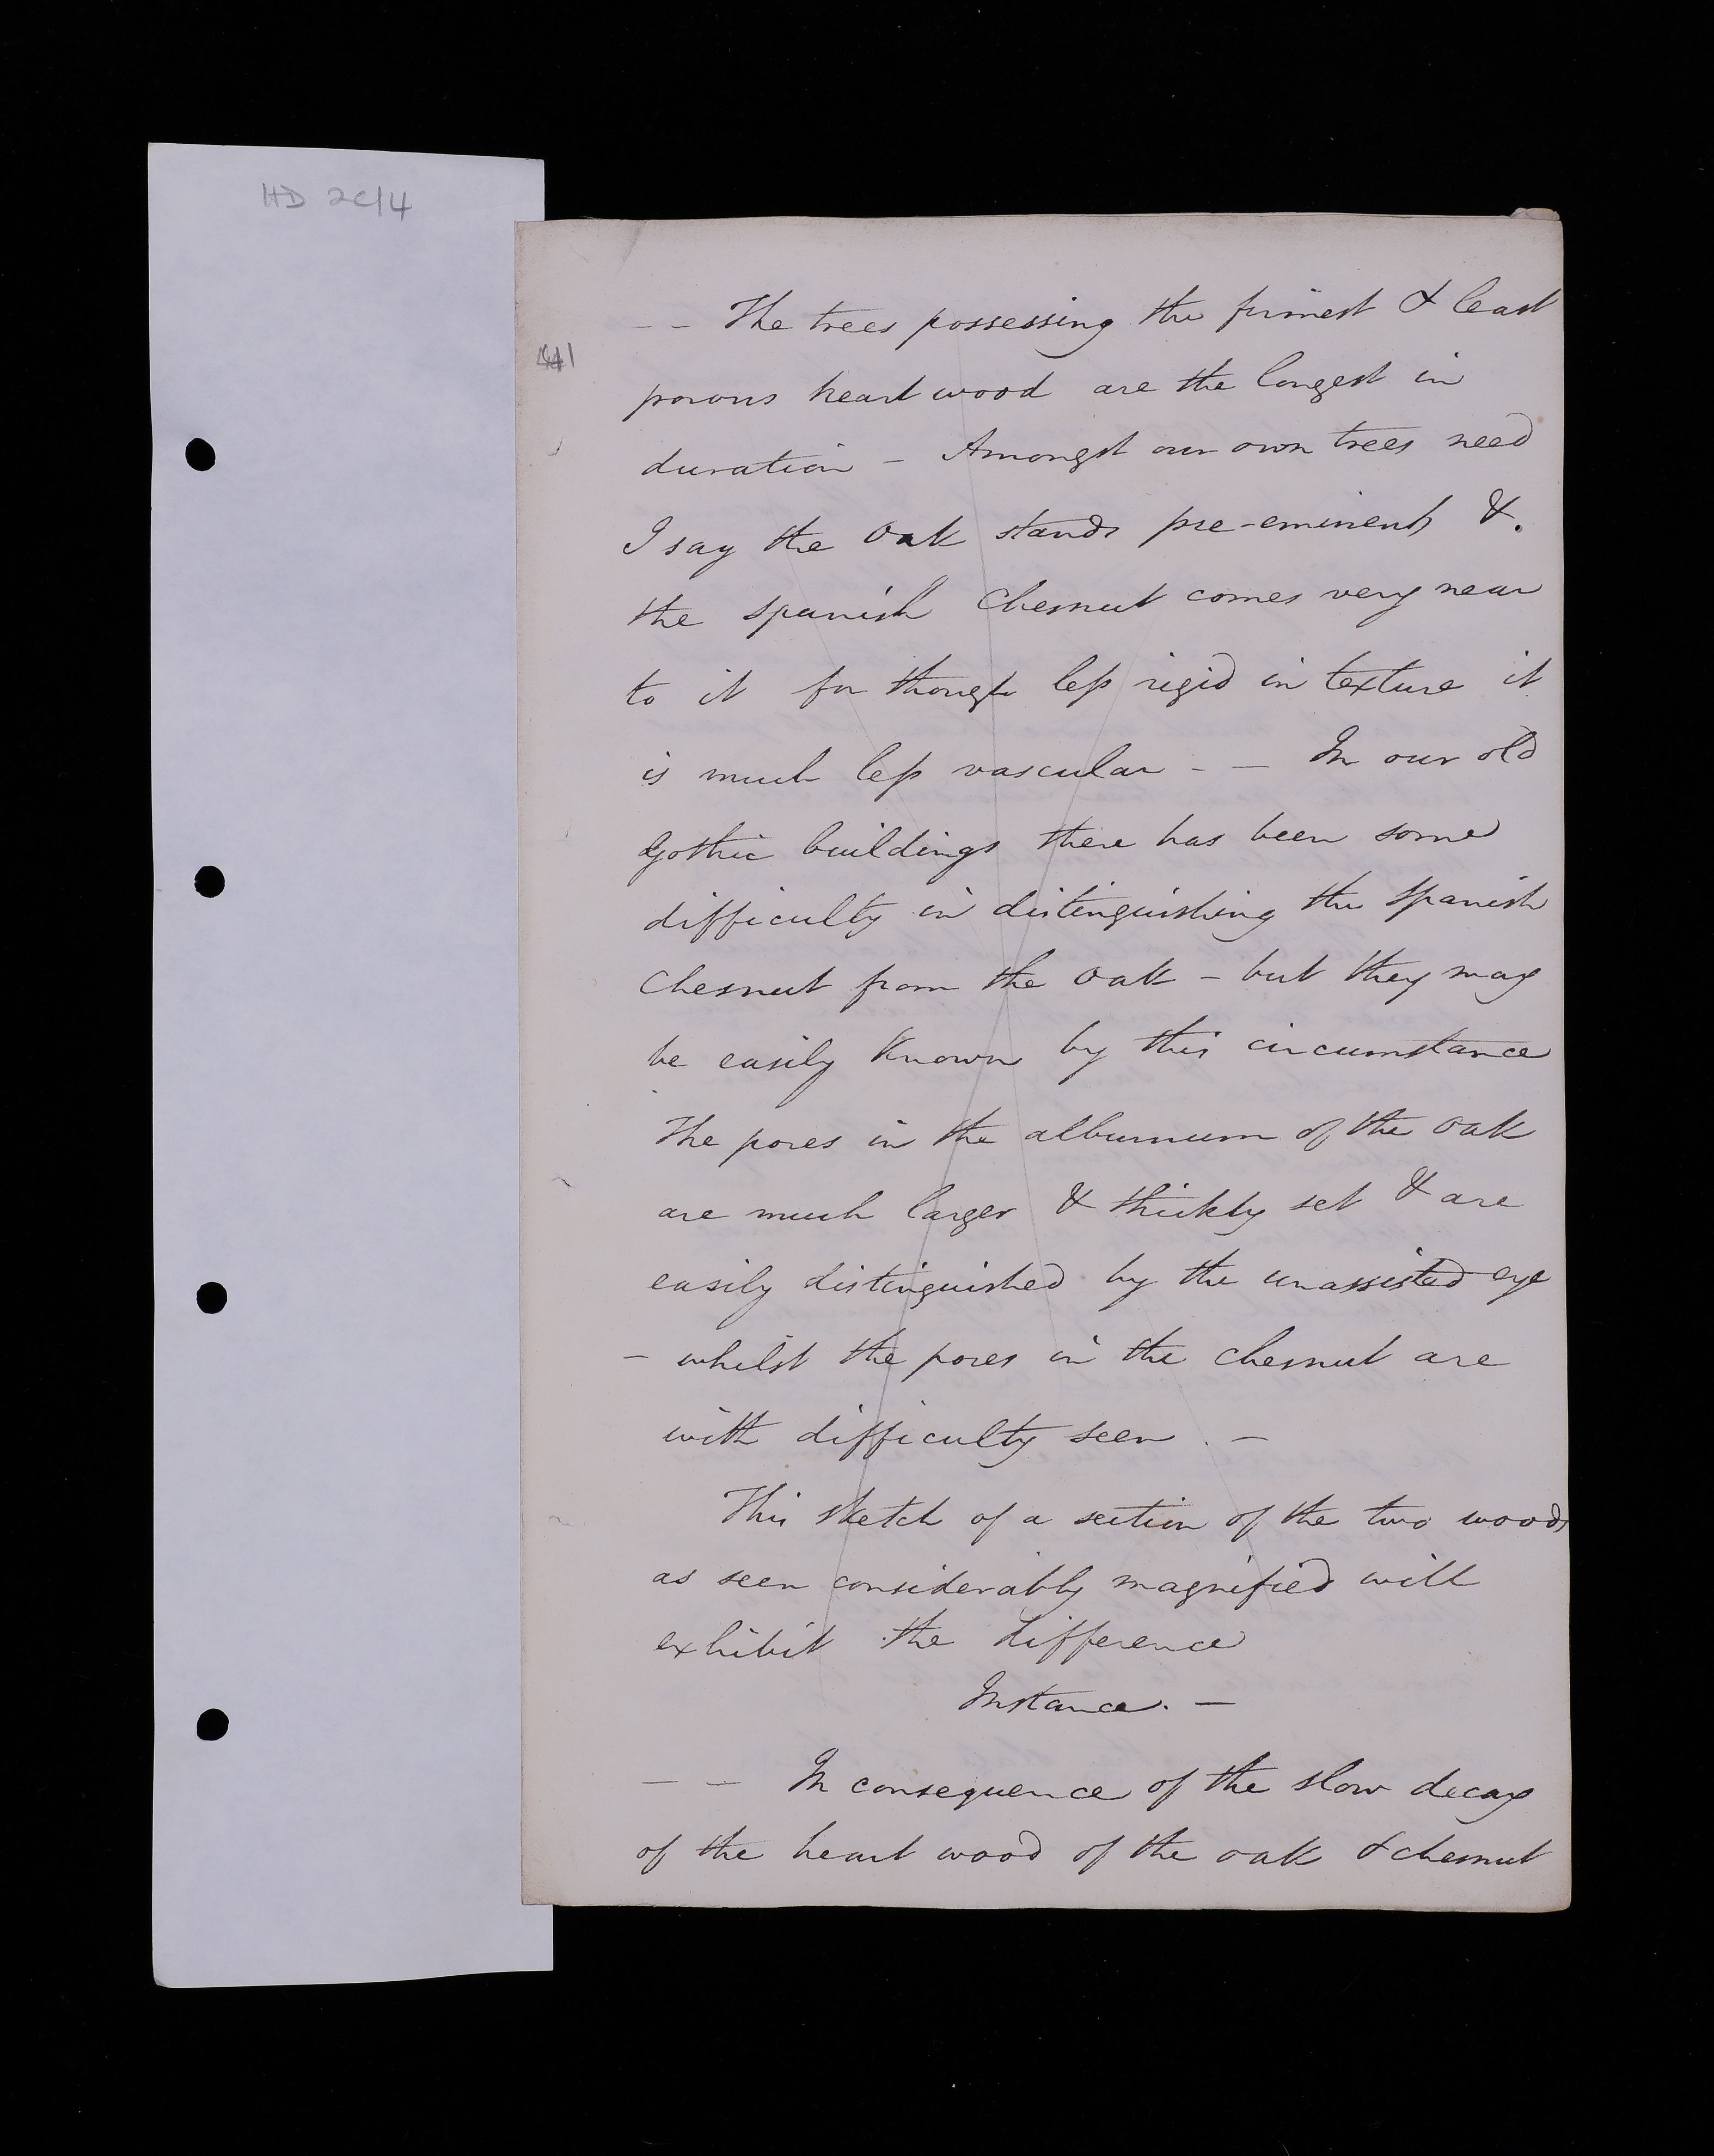 HD 2C/4
41
-- The trees possessing the firmest & least
porous heart wood are the longest in
duration - Amongst our own trees need
I say the Oak stands pre-eminent, &.
the spanish Chesnut comes very near
to it for though less rigid in texture it
is much less vascular - - In our old
gothic buildings there has been some
difficulty in distinguishing the Spanish
Chesnut from the Oak - but they may
be easily known by this circumstance
The pores in the alburnum of the Oak
are much larger & thickly set & are
easily distinguished by the unassisted eye
- whilst the pores in the chesnut are
with difficulty seen . -
This sketch of a section of the two woods
as seen considerably magnified will
exhibit the difference
Instance. -
- - In consequence of the slow decay
of the heart wood of the oak & chesnut